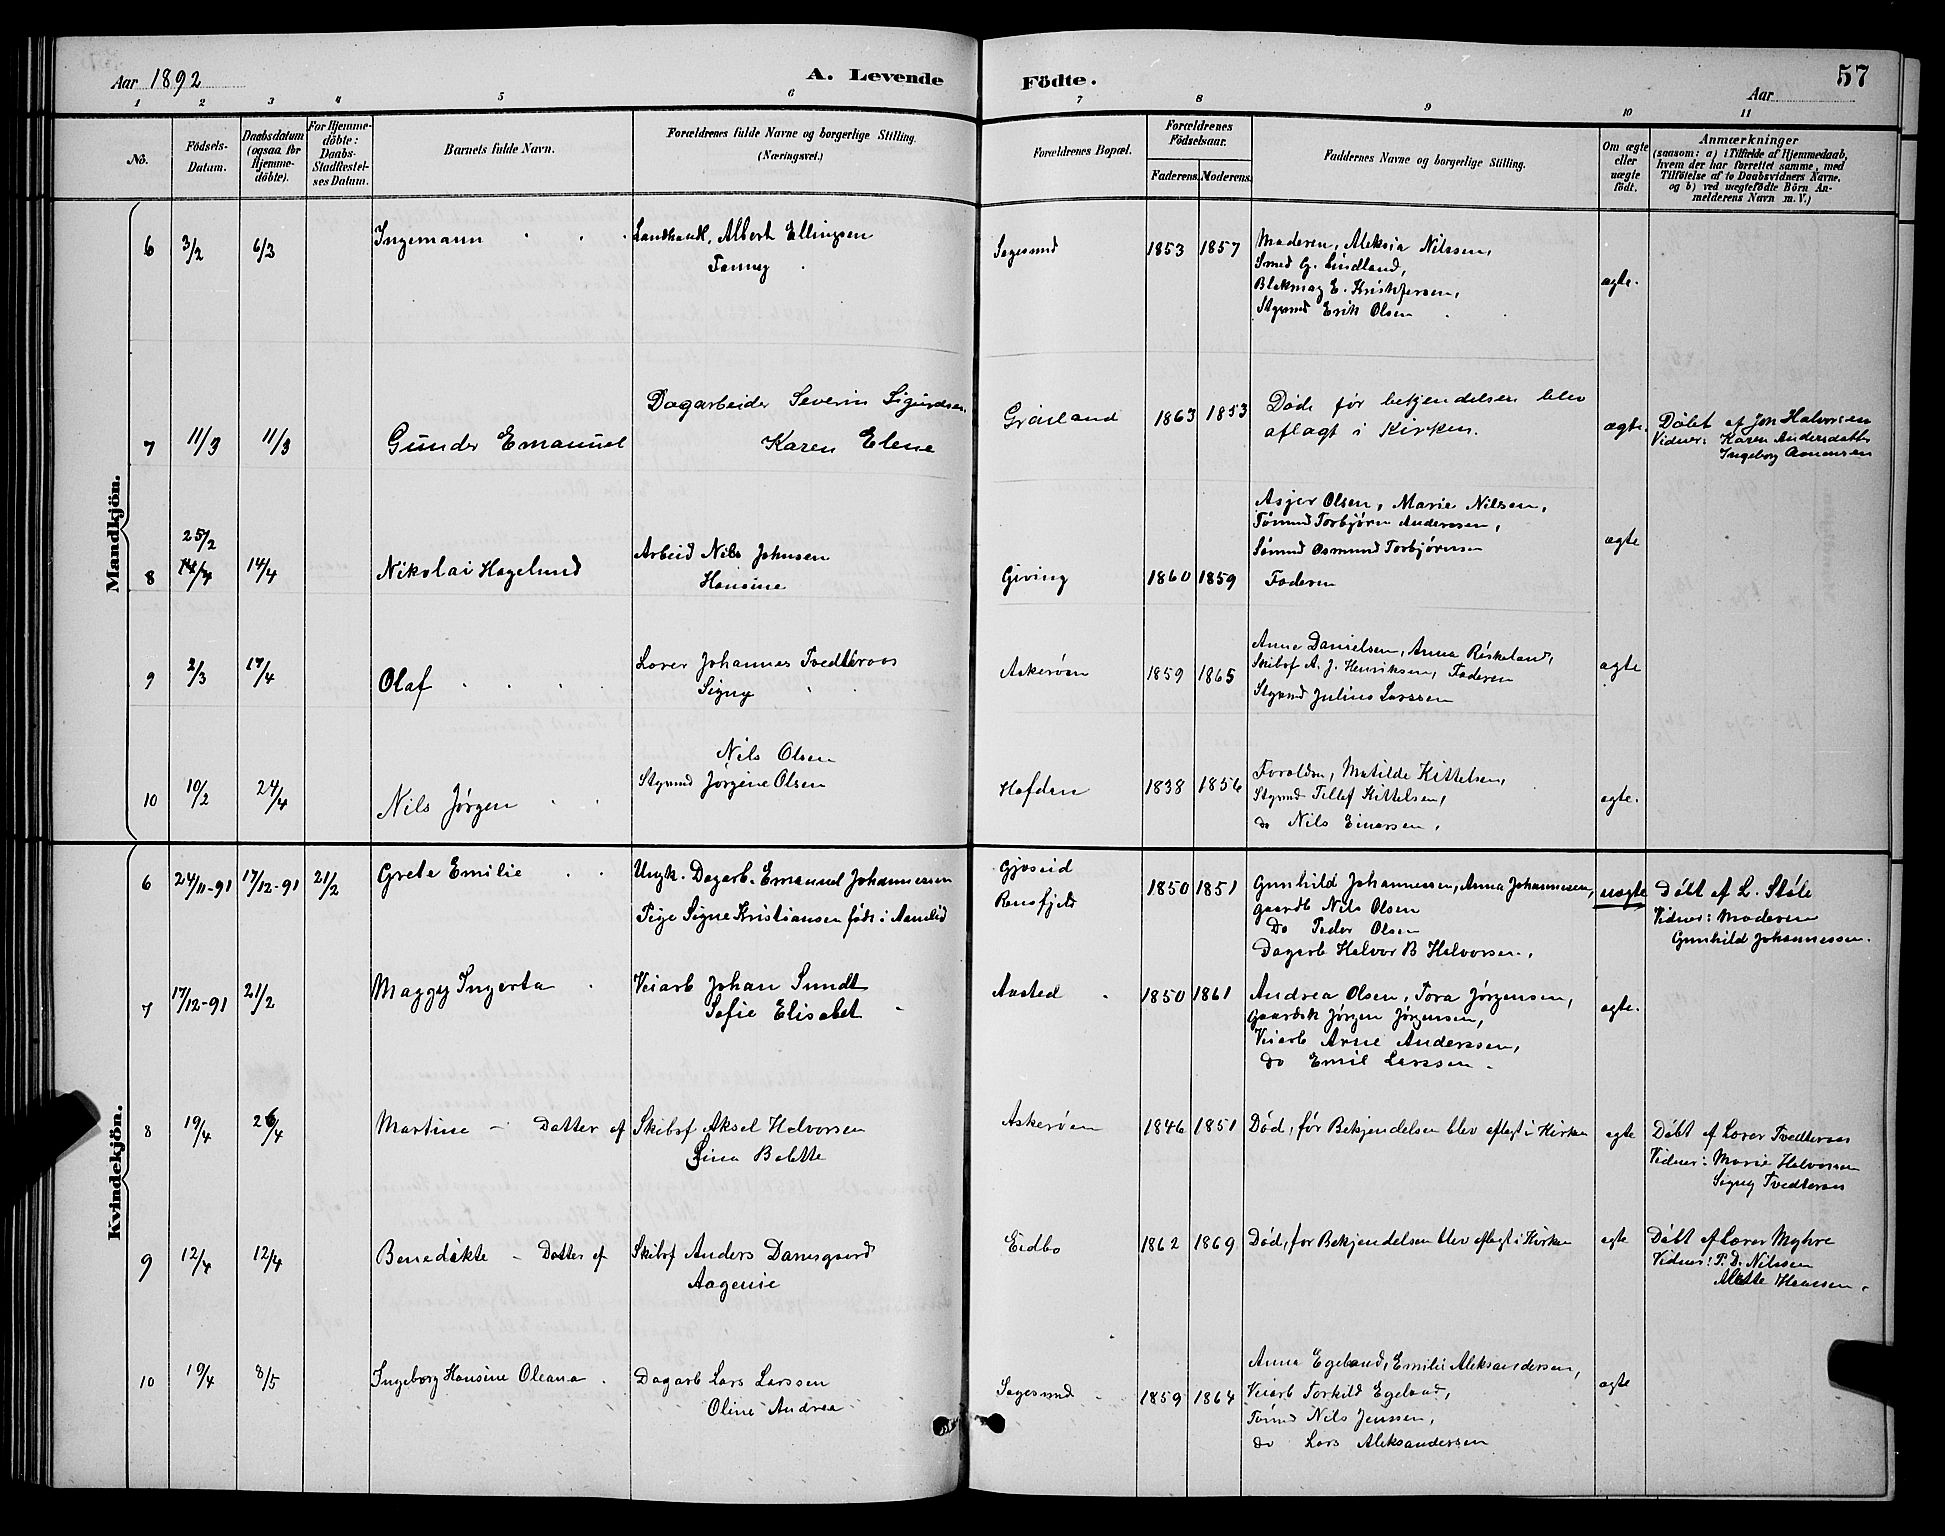 Aar 1892
A. Levende
Födte.
57
Aar
1 2 3 4 5 6 7 8 9 10 11
No.
Födsels-Datum.
Daabsdatum (ogsaa for Hjemme-döbte).
For Hjemme-döbte: Daabs-Stadfæstel-ses Datum.
Barnets fulde Navn.
Forældrenes fulde Navne og borgerlige Stilling. (Næringsvei.)
Forældrenes Bopæl.
Forældrenes Födselsaar.
Faderens. Moderens.
Faddernes Navne og borgerlige Stilling.
Om ægte eller uægte födt.
Anmærkninger
(saasom: a) i Tilfælde af Hjemmedaab, hvem der har forrettet samme, med Tilföielse af to Daabsvidners Navne. og b) ved uægtefödte Börn An-melderens Navn m. V.)
Mandkjön.
6 3/2 6/3 Ingemann Landhandl. Albert Ellingsen
Fanny
Sagesund 1853 1857
Moderen, Aleksia Nilssen,
Smed G. Lindland,
Blekmag E. Kristofersen,
Stymd Erik Olsen
ægte.
7 11/3 11/3 Gunder Emanuel
Dagarbeider Severin Sigurdsen
Karen Elene
Graaland 1863 1853
Døde før bekjendelsen blev
aflagt i Kirken.
ægte.
Døbt af Jon Halvorsen
Vidner: Karen Andersdatt
Ingeborg Aanonsen
8 25/2 14/4 14/4 Nikolai Hagelund
Arbeid Nils Johnsen
Hansine
Giving 1860 1859
Asjer Olsen, Marie Nilsen,
Tømmd Torbjørn Anderssen,
Sømmd Osmund Torbjørnsen
Faderen
ægte
9 2/3 17/4 Olaf
Lærer Johannes Tvedteraas
Signy
Askerøen 1859 1865
Anne Danielsen, Anna Røskeland,
Skibsf A. J. Henriksen, Faderen
Stymd Julius Larssen
ægte
10 10/2 24/4 Nils Jørgen
Nils Olsen
Stymd Jørgine Olsen
Hafden 1838 1856
Foraldre, Matilde Kittelsen,
Stymd Tellef Kittelsen,
do Nils Einersen,
ægte.
Kvindekjön.
6 24/11-91 17/12-91 21/2 Grete Emilie
Ungk. Dagarb. Emanuel Johannessen
Pige Signe Kristiansen født i Aamlid
Gjøseid
Rønsfjeld
1850 1851
Gunhild Johannessen, Anna Johannessen,
Gaardb Nils Olsen
Do Peder Olsen
Dagarb Halvor B Halvorsen,
uægte
Døbt af L. Støle
Vidner: Moderen
Gunhild Johannessen.
7 17/12-91 21/2 Maggy Ingerta
Veiarb Johan Sundt
Sofie Elisabet
Aasted 1850 1861
Andrea Olsen, Tora Jørgensen,
Gaardsk Jørgen Jørgensen,
Veiarb Arne Anderssen,
do Emil Larssen
ægte.
8 19/4 26/4 Martine – Datter af
Skibsf Aksel Halvorsen
Lina Bolette
Askerøen 1846 1851
Død, før Bekjendelsen blev aflagt i Kirken
ægte
Døbt af Lærer Tvedteraas
Vidner: Marie Halvorsen
Signy Tvedteraas
9 12/4 12/4 Benedikte – Datter af
Skibsf Anders Damsgaard
Aagenie
Eidbo 1862 1869
Død, før Bekjendelsen blev aflagt i Kirken
ægte
Døbt af Lærer Myhre
Vidner: P. D. Nilssen
Alette Hansen.
10 19/4 8/5 Ingeborg Hansine Oleana
Dagarb Lars Larssen
Oline Andrea
Sagesund 1859 1864
Anna Egeland, Emilie Aleksandersen,
Veiarb Torkild Egeland,
Tømmd Nils Jenssen,
do Lars Aleksandersen
ægte